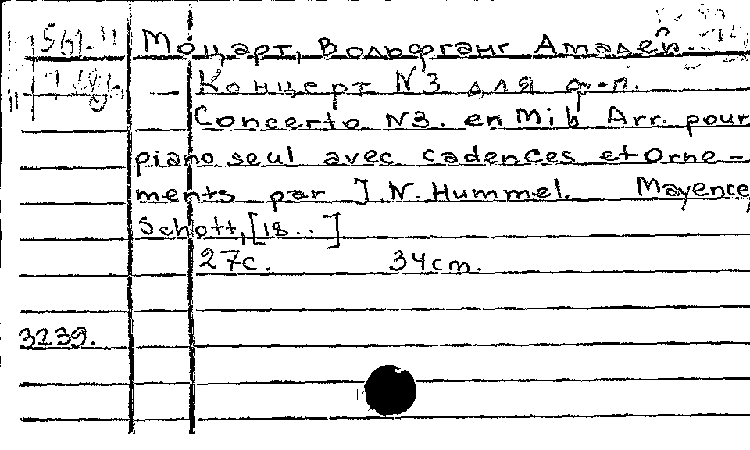 561-11 Моцарт, Вольфганг Амадей.
Концерт N3 для ф-п.
Concerto N3. en Mi b Arr. pour
piano seul avec cadences et orne-
ments par J. N. Hummel. Mayence,
Schott, [18..]
27с. 34cm.
3239.